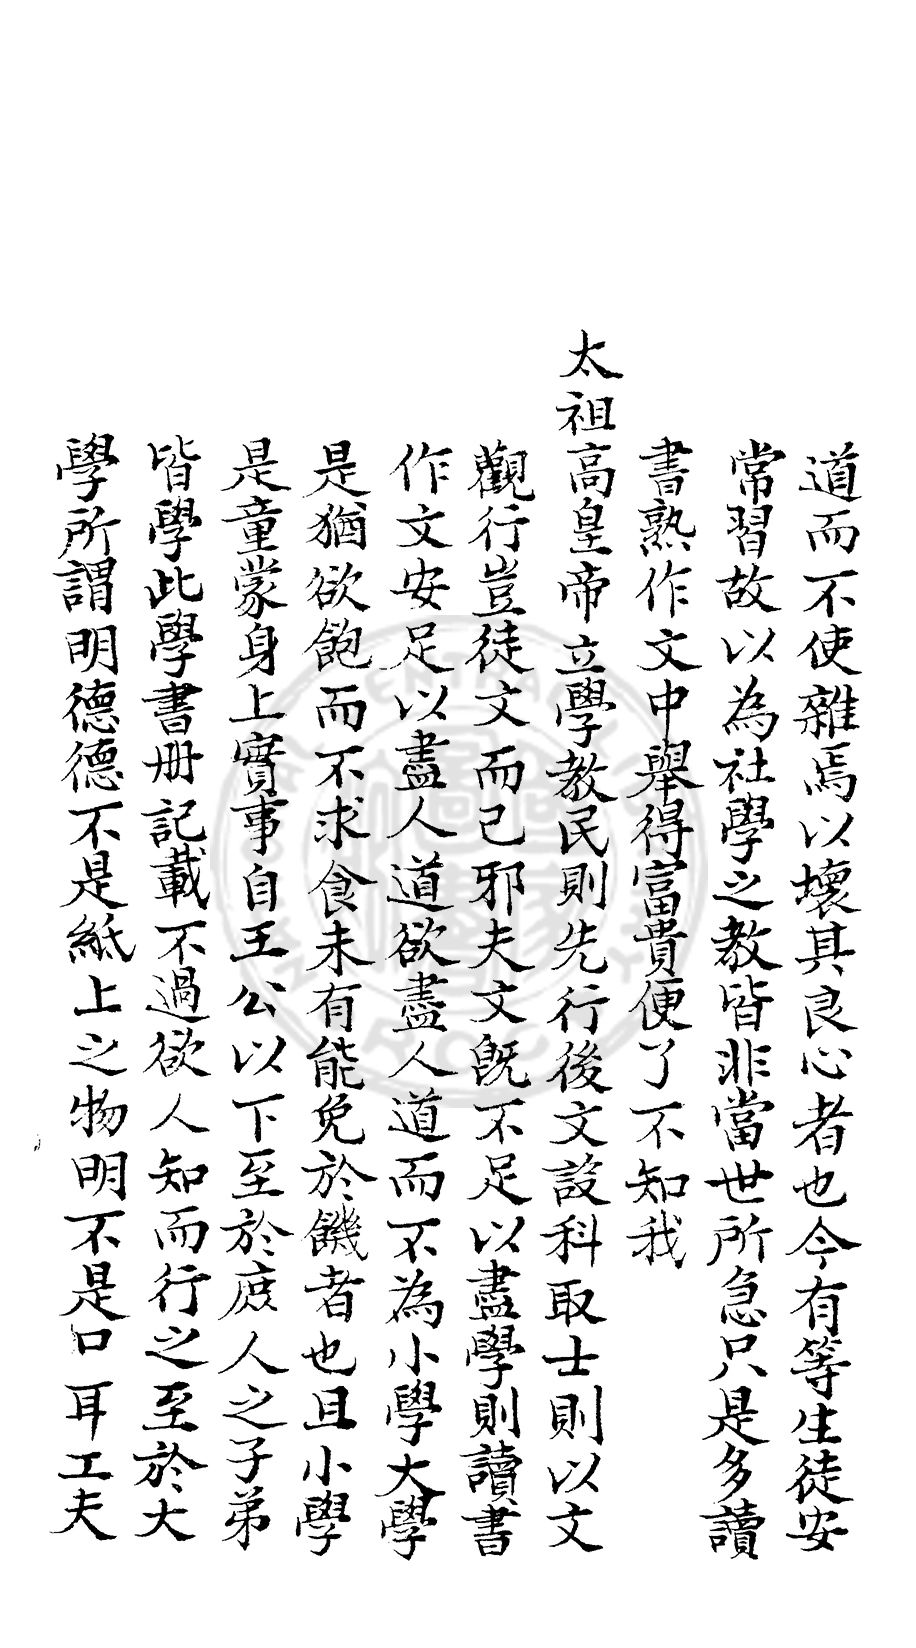 道而不使雜焉以壞其良心者也今有等生徒安
常習故以為社學之教皆非當世所急只是多讀
書熟作文中舉得富貴便了不知我
太祖高皇帝立學教民則先行後文設科取士則以文
觀行豈徒文而已邪夫文既不足以盡學則讀書
作文安足以盡人道欲盡人道而不為小學大學
是猶欲飽而不求食未有能免於饑者也且小學
是童蒙身上實事自王公以下至於庶人之子弟
皆學此學書冊記載不過欲人知而行之至於大
學所謂明德德不是紙上之物明不是口耳工夫